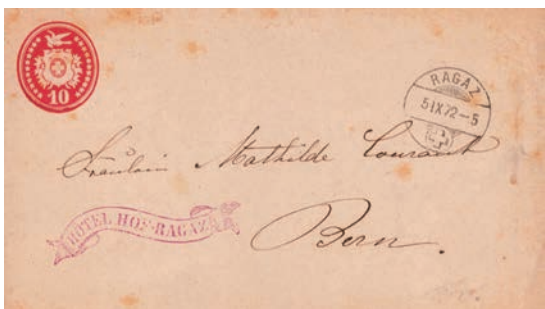 10
RAGAZ
5 IX 72-5
Fräulein Mathilde Courant
HOTEL HOF-RAGAZ
Bern.